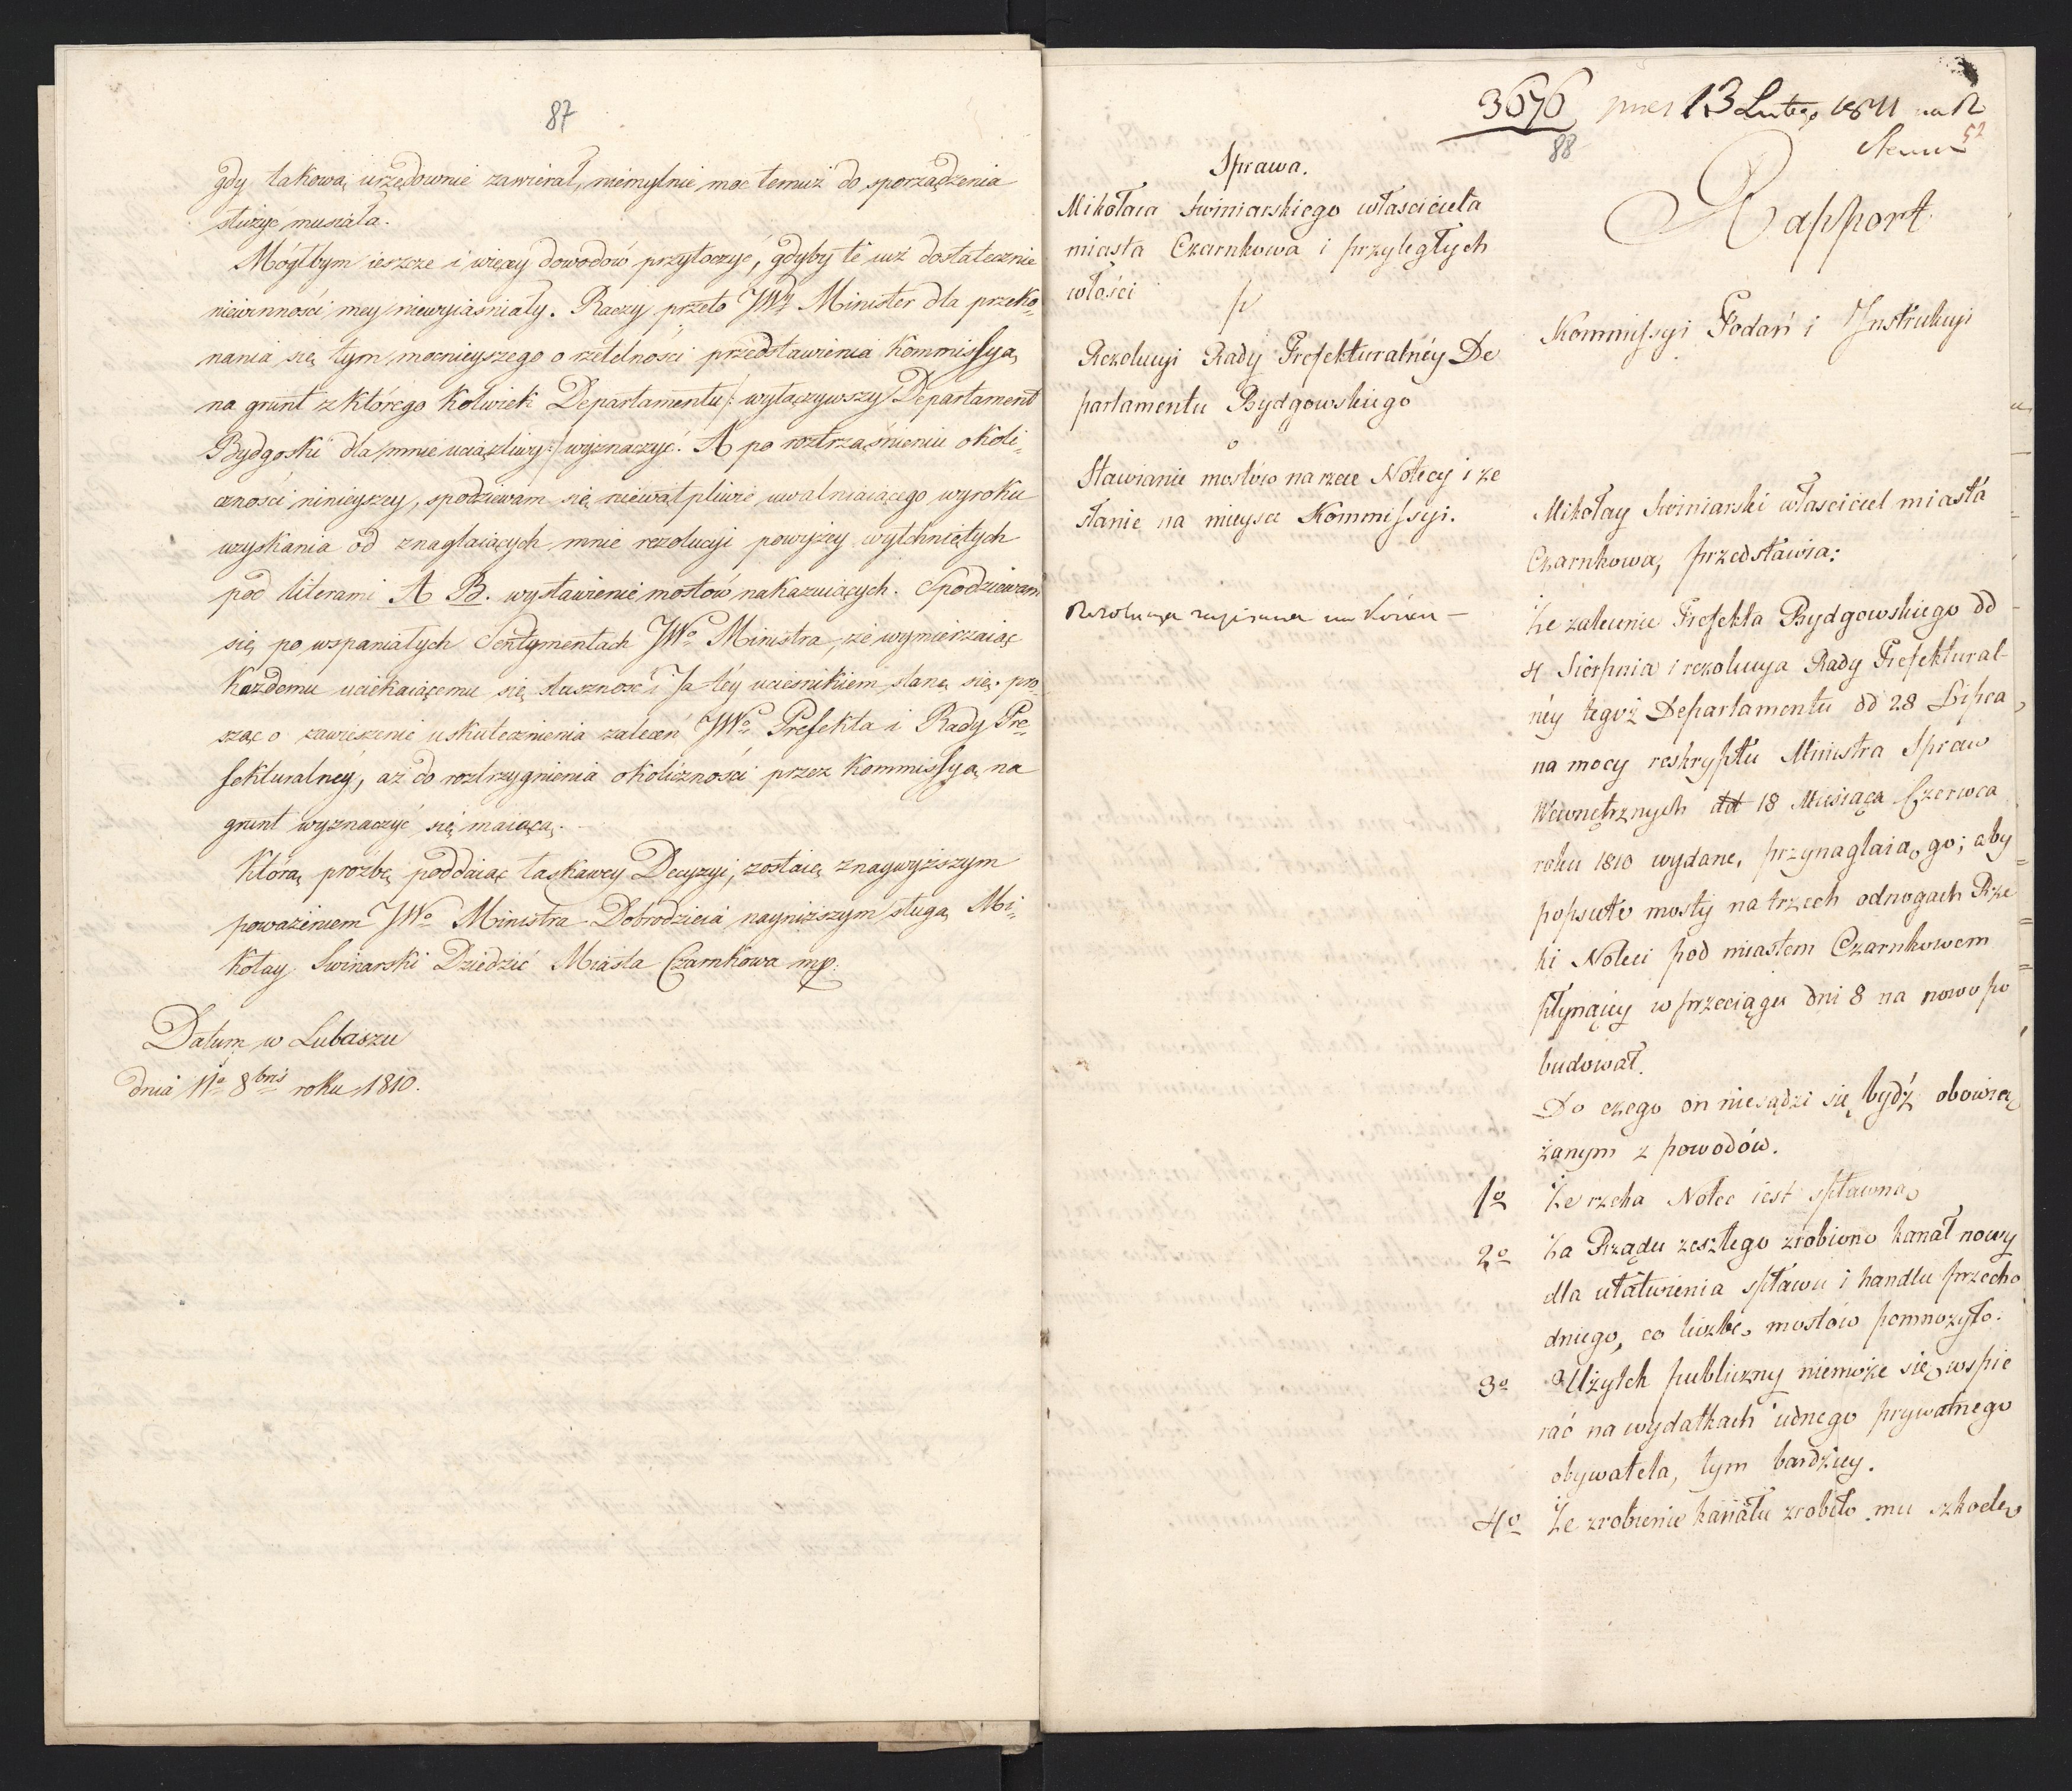 87
gdy takowa, urzędownie zawierał, niemylnie moc temuż do sporządzenia
służyć musiała.
Mógłbym ieszcze i więcey dowodów przytoczyć, gdyby te iuż dostatecznie
niewinności mey niewyiaśniały. Raczy przeto JWy Minister dla przeko=
nania się tym mocnieyszego o rzetelności przedstawienia Kommissyą,
na grunt z którego kolwiek Departamentu /: wyłączywszy Departament
Bydgoski dla mnie uciążliwy :/ wyznaczyć. A po roztrząśnieniu okoli=
czności ninieyszey, spodziewam się niewątpliwie uwalniaiącego wyroku
uzyskania od znaglaiących mnie rezolucyi powyżey wytchniętych
pod literami A B. wystawienie mostów nakazuiących. Spodziewam
się po wspaniałych Sentymentach JWo Ministra, że wymierzaiąc
każdemu uciekaiącemu się słuszność i Ja téy ucześnikiem stanę się. pro=
sząc o zawieszenie uskutecznienia zaleceń JWo Prefekta i Rady Pre=
fekturalney, aż do roztrzygnienia okoliczności przez Kommissyą na
grunt wyznaczyć się maiącą.
Którą prozbę poddaiąc łaskawey Decyzyi, zostaię z naywyższym
poważeniem JWo Ministra Dobrodzieia nayniższym sługą Mi=
kołay Swinarski Dziedzić Miasta Czarnkowa mp.
Datum w Lubaszu
dnia 11o 8bris roku 1810.
3676 pres 13 Lutego 1811 na R
52
88
Sprawa.
Mikołaia Swiniarskiego właściciela
miasta Czarnkowa i przyległych
włości
p
Rezolucyi Rady Prefekturalnéy De
partamentu Bydgowskiego
o
Stawianie mostów na rzece Notecy i ze
słanie na mieysce Kommissyi.
Rezolucya zapisana na końcu —
Rapport
Kommissyi Podań i Instrukcyi
Mikołay Swiniarski właściciel miasta
Czarnkowa, przedstawia:
Że zalecenie Prefekta Bydgowskiego dd
4 Sierpnia i rezolucya Rady Prefektural-
néy tegoż Departamentu dd 28 Lipca,
na mocy reskryptu Ministra Spraw
Wewnętrznych dd 18 Miesiąca Czerwca
roku 1810 wydane, przynaglaią go; aby
popsute mosty na trzech odnogach Rze
ki Noteci pod miastem Czarnkowem
płynący w przeciągu dni 8 na nowo po
budował.
Do czego on niesądzi się bydź obowią
zanym z powodów.
1o Że rzeka Noteć iest spławną
2o Za Rządu zeszłego zrobiono kanał nowy
dla ułatwienia spławu i handlu przecho
dniego, co liczbę mostów pomnożyło.
3o Użytek publiczny niemoże się wspie
rać na wydatkach iednego prywatnego
obywatela, tym bardziey.
4o Że zrobienie kanału zrobiło mu szkodę